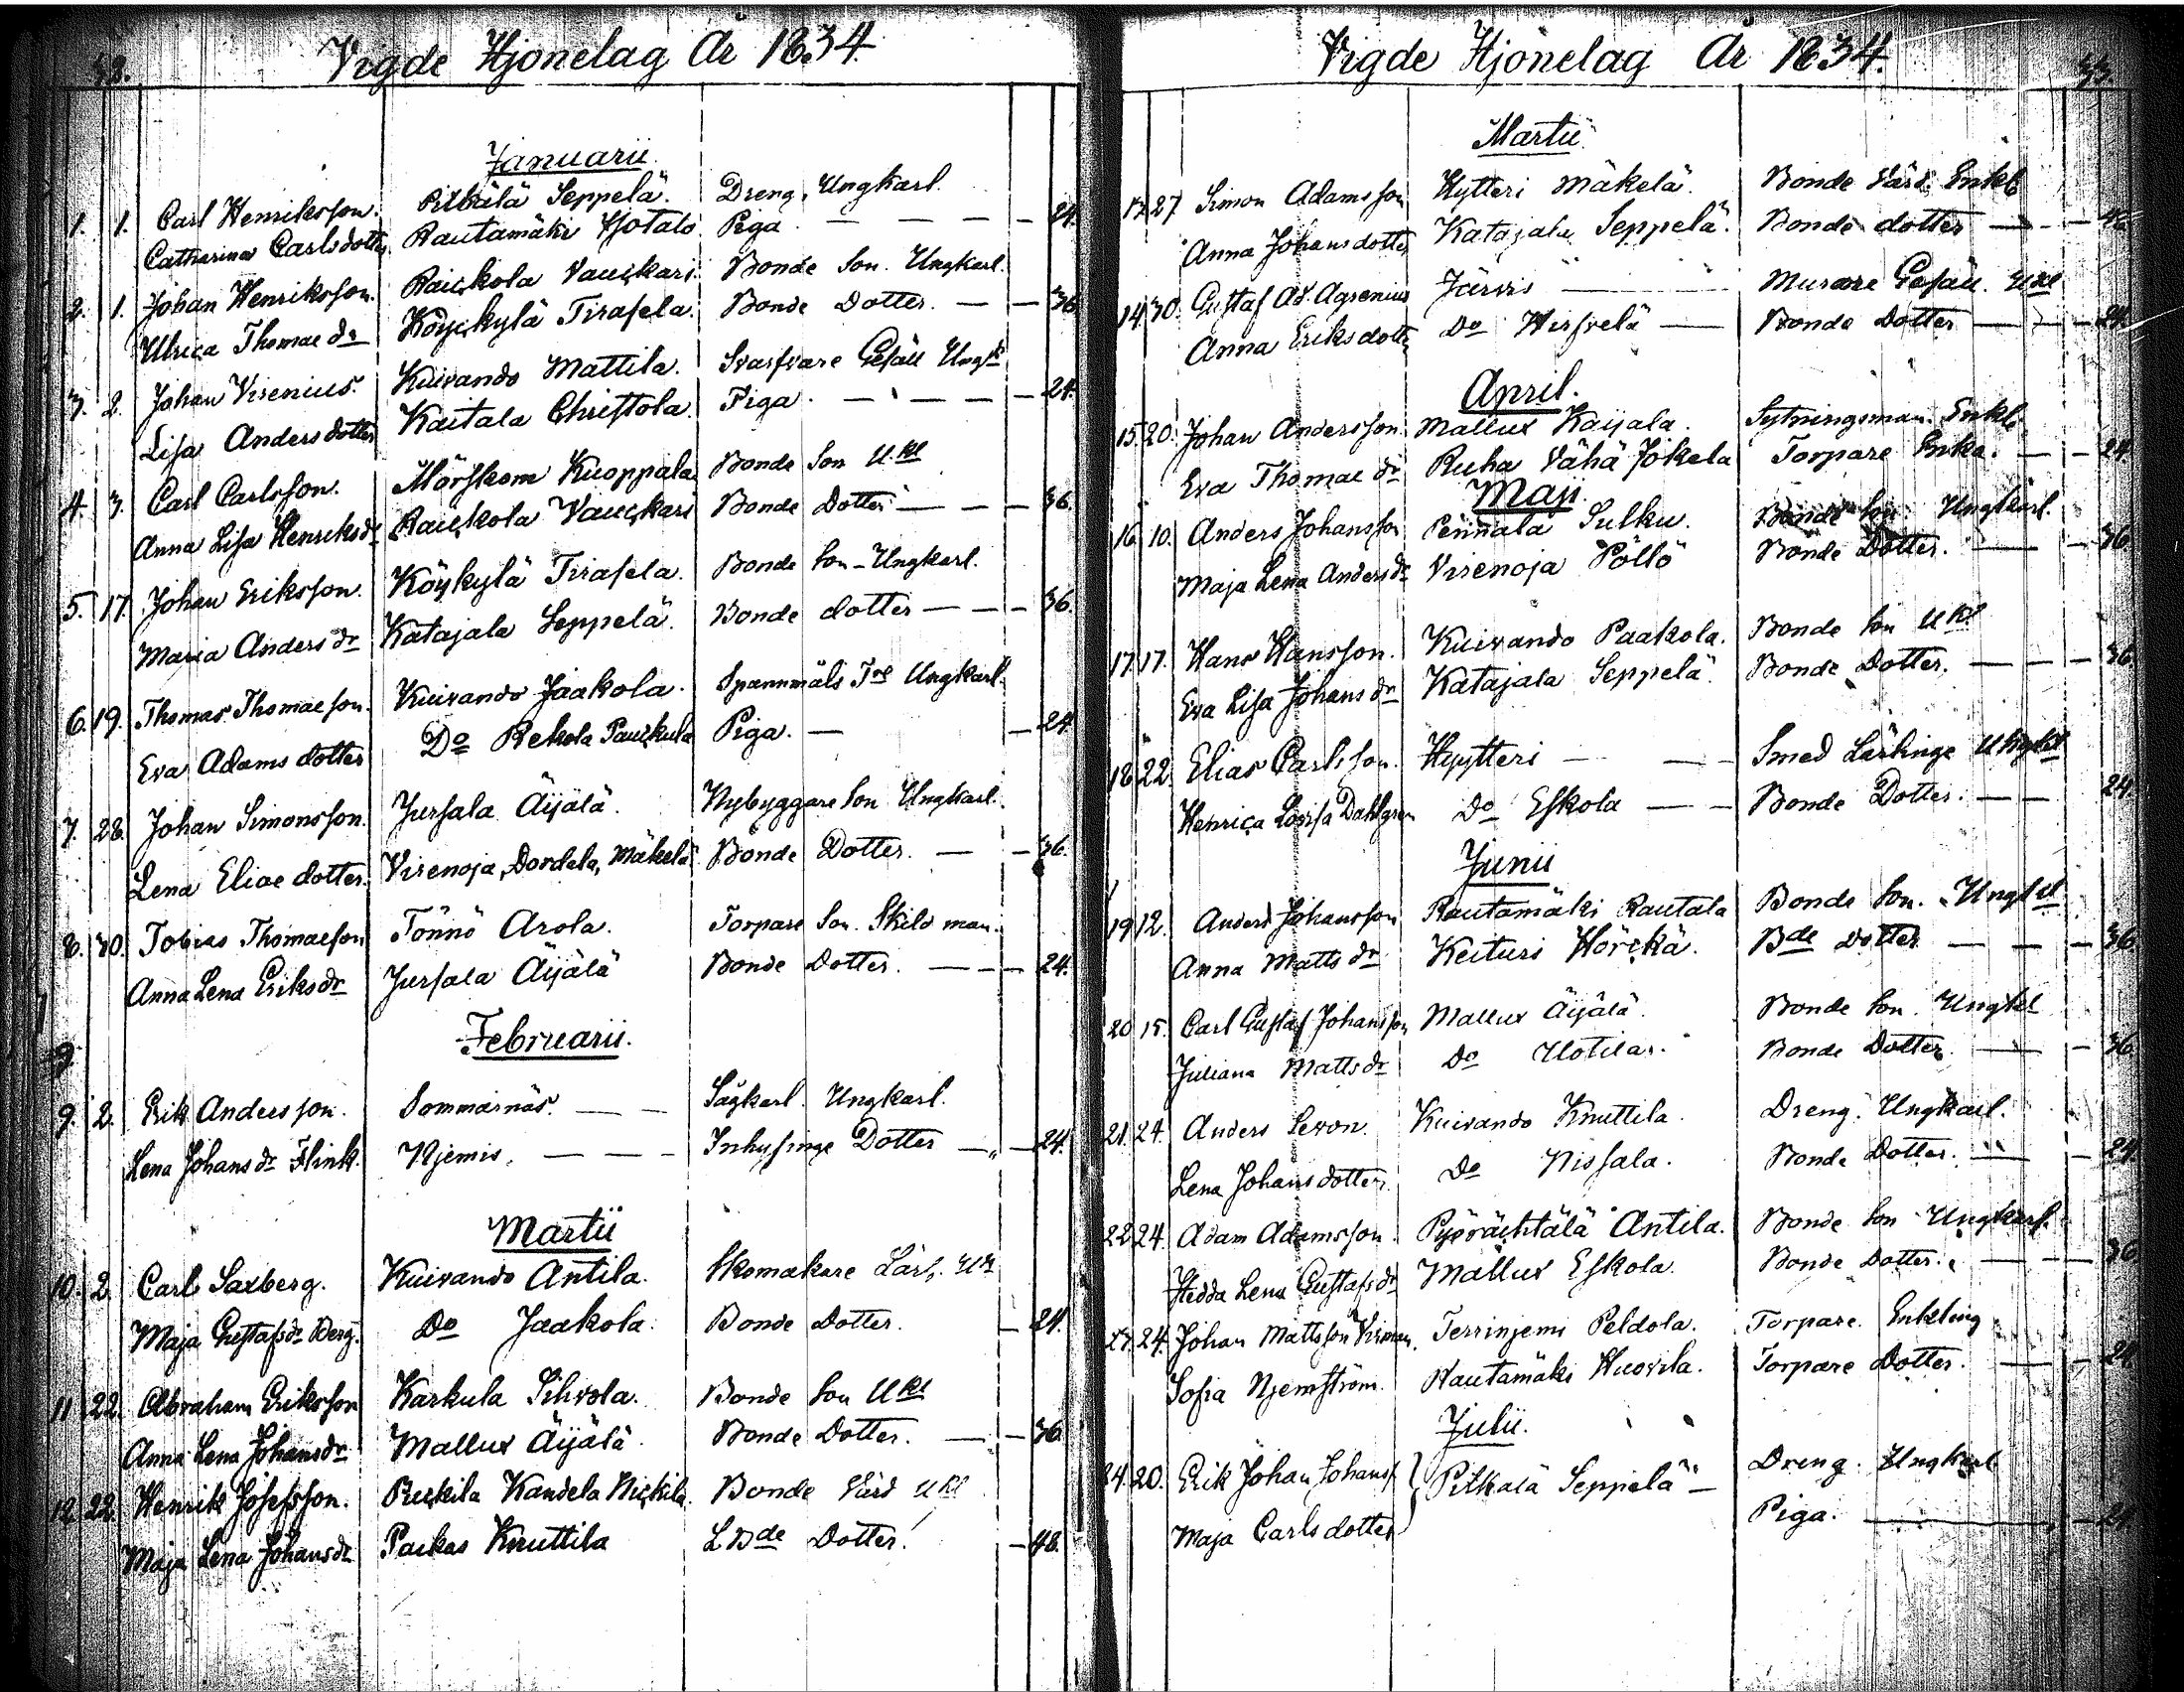 Vigde Hjonelag År 1834.
Januarii.
1. 1. Carl Henriksson. Pitkälä Seppelä. Dreng, Ungkarl.
Catharina Carlsdotter Rautamäki Hotato Piga — — — — 24.
2. 1. Johan Henriksson. Rauckola Vauckari Bonde Son. Ungkarl.
Ulrica Thomae dr Köyckylä Tirasela. Bonde Dotter. — — 36
3. 2. Johan Virenius. Kuivando Mattila. Svarfvare Gesäll Ungk
Lisa Andersdotter Kaitala Christola. Piga. — — — — 24.
4. 3. Carl Carlsson. Mörskom Kuoppala Bonde Son Ukl
Anna Lisa Henriksdr Rauckola Vauckari Bonde Dotter — — — 36.
5. 17. Johan Eriksson. Köykylä Tirasela. Bonde Son - Ungkarl.
Maria Anders dr Katajala Seppelä. Bonde dotter — — — 36.
6. 19. Thomas Thomaeson. Kuivando Jaakola. Spannmåls Ungkarl.
Eva Adams dotter Do Rekola Pauckula Piga. — — 24.
7. 28. Johan Simonsson. Jursala Äijälä. Nybyggare Son Ungkarl.
Lena Eliae dotter. Virenoja, Dordela, Mäkelä Bonde Dotter. — — 36.
8. 30. Tobias Thomaeson Tönnö Arola. Torpare Son. Skild man.
Anna Lena Eriksdr Jursala Äijälä Bonde Dotter. — — — 24.
Februarii.
9. 2. Erik Andersson. Sommarnäs. — — Sågkarl. Ungkarl.
Lena Johans dr Flink. Njemis. — — — Inhysinge Dotter — — 24.
Martii
10. 2. Carl Saxberg. Kuivando Antila. Skomakare Lärl.
Maja Gustafsdr Berg. Do Jaakola. Bonde Dotter. — 24.
11 22. Abraham Eriksson Karkula Sihvola. Bonde Son Ukl
Anna Lena Johansdr Mallux Äijälä. Bonde Dotter. — — 36
12. 22. Henrik Josefsson. Ruckila Kandela Nickila. Bonde Värd Ukl
Maja Lena Johansdr Paikas Knuttila L Bde Dotter. — 48.
Vigde Hjonelag År 1834.
33.
Martii
27 Simon Adamsson Hytteri Mäkelä. Bonde Värd. Enkl
Anna Johansdotter Katajala Seppelä. Bonde dotter — —
14 30. Gustaf Ad. Agrenius Järvis — — Murare Gesäll. Ukl
Anna Eriksdotter Do Hirsvelä — Bonde Dotter — — — 24.
April.
15. 20. Johan Andersson. Mallux Kaijala. Sytningsman Enkl.
Eva Thomae dr Ruha Vähä Jokela Torpare Enka. — — 24.
Maji.
16 10. Anders Johansson Pennala Sulku. Bonde Son Ungkarl.
Maja Lena Andersdr Virenoja Pöllö Bonde Dotter. — — 36
17 17. Hans Hansson. Kuivando Paakola. Bonde Son Ukl
Eva Lisa Johans dr Katajala Seppelä. Bonde Dotter. — — — 36.
18 22. Elias Carlsson. Hyytteri — — Smed Lärlinge Ungkl
Henrica Lovisa Dahlgren Do Eskola — — Bonde Dotter. — — 24.
Junii
19 12. Anders Johansson Rautamäki Rautala Bonde Son. Ungkl
Anna Matts dr Keituri Hörckä. Bde Dotter — — — 36
20 15. Carl Gustaf Johansson Mallux Äijälä. Bonde Son. Ungkl
Juliana Mattsdr Do Uotila. Bonde Dotter. — — 36
21. 24. Anders Levon. Kuivando Knuttila. Dreng. Ungkarl.
Lena Johansdotter. Do Nissala. Bonde Dotter. — — 24.
22 24. Adam Adamsson. Pyöräehtälä Antila. Bonde Son Ungkarl.
Hedda Lena Gustafsdr Mallux Eskola. Bonde Dotter. — — 36
23. 24. Johan Mattsson Virman. Terrinjemi Peldola. Torpare. Enkling
Sofia Njemström. Rautamäki Huovila. Torpare Dotter. — — 24
Julii.
24. 20. Erik Johan Johanss } Pitkälä Seppelä — Dreng. Ungkarl
Maja Carlsdotter Piga. — — 24